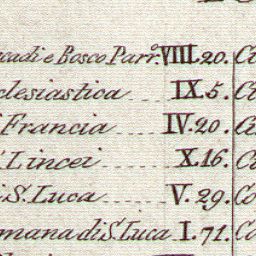 cadi e Bosco Parr.º VIII. 20. C
clesiastica IX. 5. C
Francia IV. 20. C
Lincei X. 16. C
i S. Luca V. 29. Co
mana di S. Luca I. 71. Ca